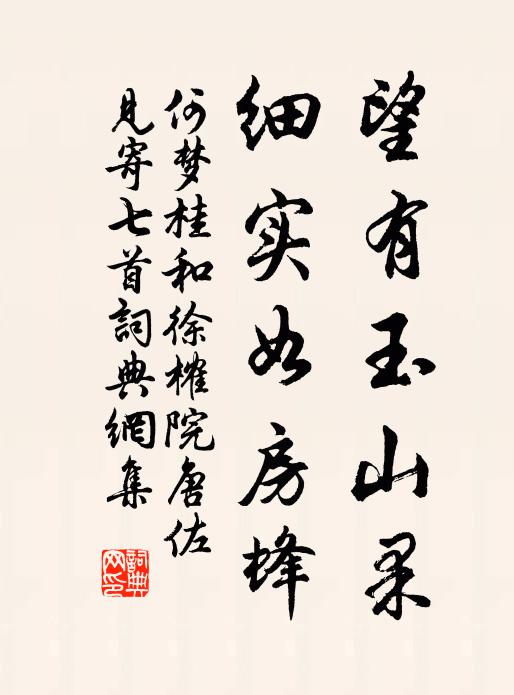 望有玉山果
细实如房蜂
何梦桂和徐榷院唐佐
见寄七首詞典網集
詞典
网印